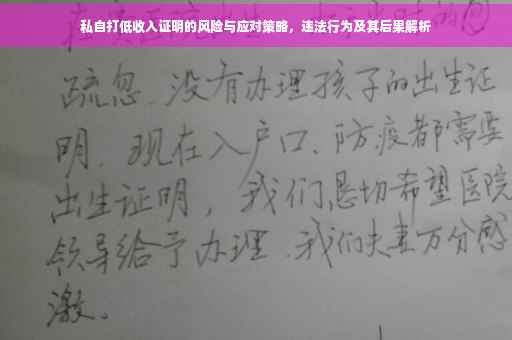 私自打低收入证明的风险与应对策略，违法行为及其后果解析
疏忽、没有办理孩子的出生证
明、现在入户口、防疫都需要
出生证明，我们恳切希望医院
领导给予办理、我们夫妻万分感
激。